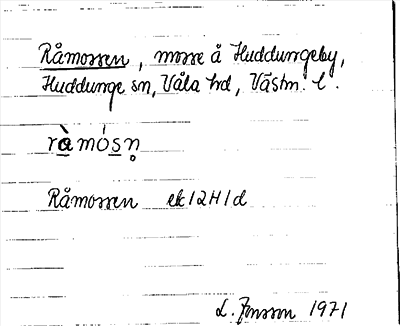 Råmossen, mosse å Huddungeby,
Huddunge sn, Våla hd, Västm. l.
ràmósn̥
Råmossen ek 12H1d
L. Jonsson 1971